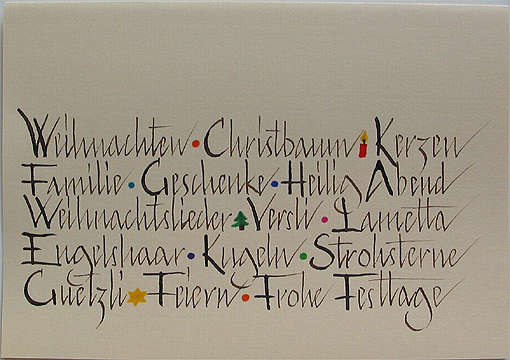 Weihnachten • Christbaum Kerzen
Familie • Geschenke • Heilig Abend
Weihnachtslieder Versli • Lametta
Engelshaar • Kugeln • Strohsterne
Guetzli Feiern • Frohe Festtage